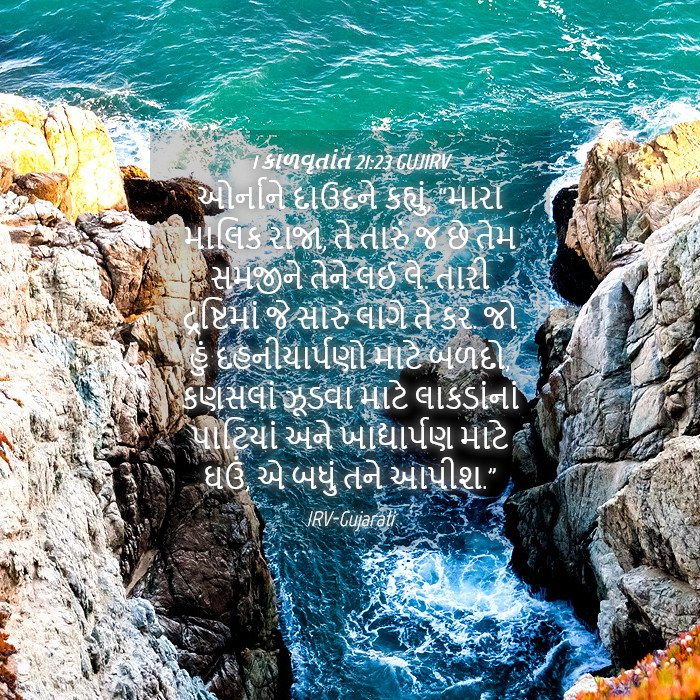 1 કાળવૃતાંત 21:23 GUJIRV
ઓર્નાને દાઉદને કહ્યું, “મારા
માલિક રાજા, તે તારું જ છે તેમ
સમજીને તેને લઈ લે. તારી
દ્રષ્ટિમાં જે સારું લાગે તે કર. જો
હું દહનીયાર્પણો માટે બળદો,
કણસલાં ઝૂડવા માટે લાકડાંનાં
પાટિયાં અને ખાદ્યાર્પણ માટે
ઘઉં, એ બધું તને આપીશ.”
IRV-Gujarati